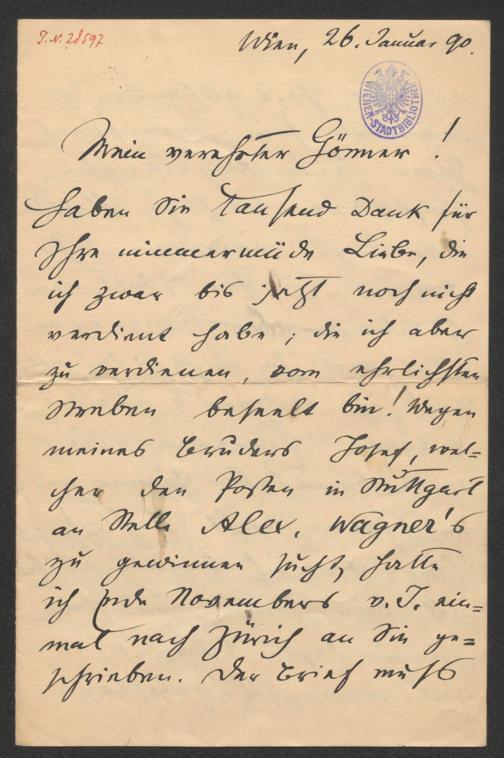 J.N. 28597
Wien, 26. Januar 90.
WIENER STADTBIBLIOTHEK
Mein verehrter Gönner!
Haben Sie Tausend Dank für
Ihre nimmermüde Liebe, die
ich zwar bis jetzt noch nicht
verdient habe; die ich aber
zu verdienen, vom ehrlichsten
Streben beseelt bin! Wegen
meines Bruders Josef, wel=
cher den Posten in Stuttgart
an Stelle Alex. Wagner's
zu gewinnen sucht, hatte
ich Ende Novembers v. J. ein=
mal nach Zürich an Sie ge=
schrieben. Der Brief muss